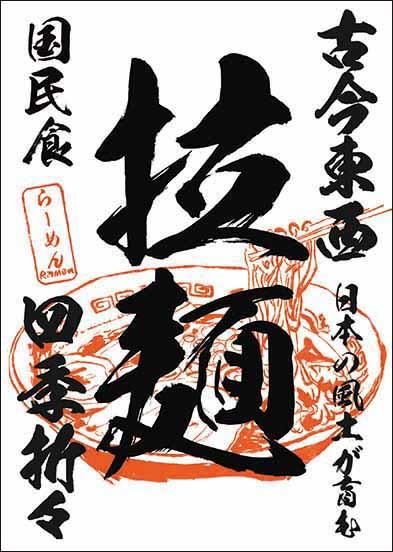 古今東西
日本の風土が育む
拉麺
国民食
らーめん
Ramen
四季折々